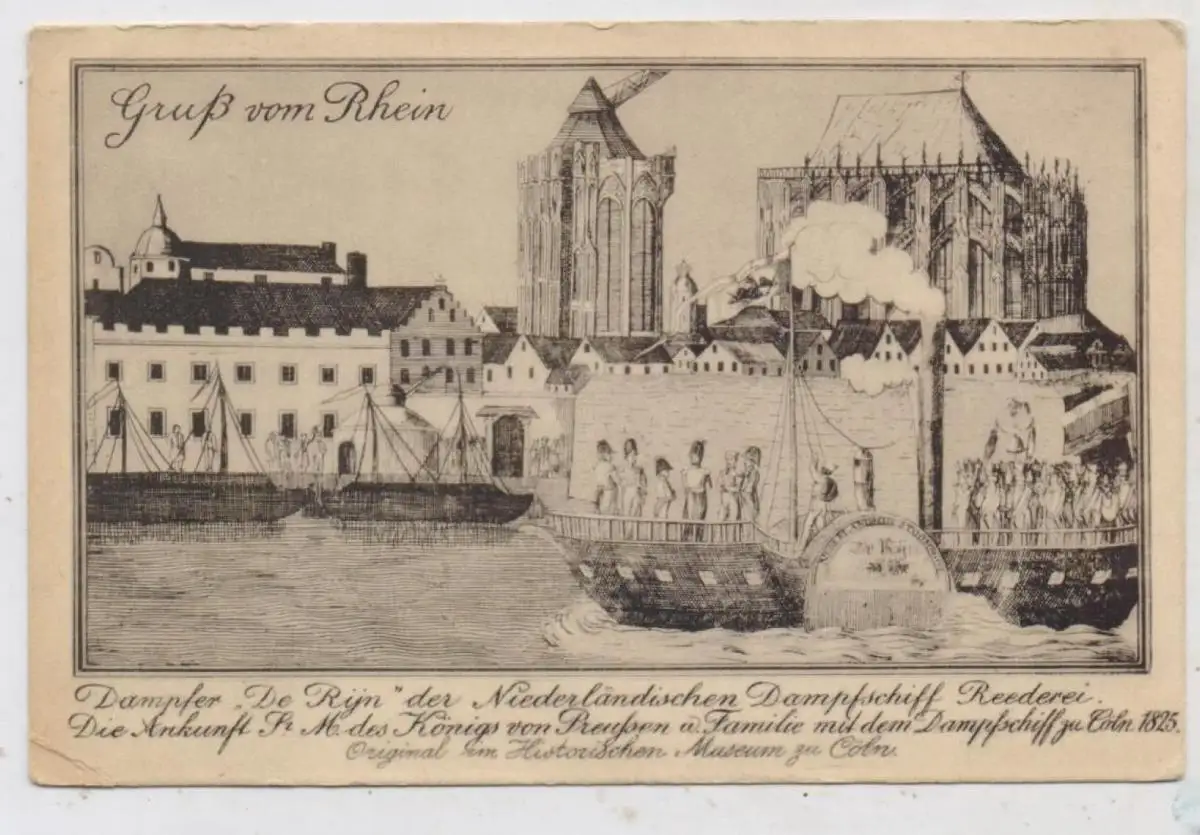 Gruß vom Rhein
Dampfer „De Rijn" der Niederländischen Dampfschiff Reederei.
Die Ankunft Sr. M. des Königs von Preußen u. Familie mit dem Dampfschiff zu Cöln 1825.
Original im Historischen Museum zu Cöln.